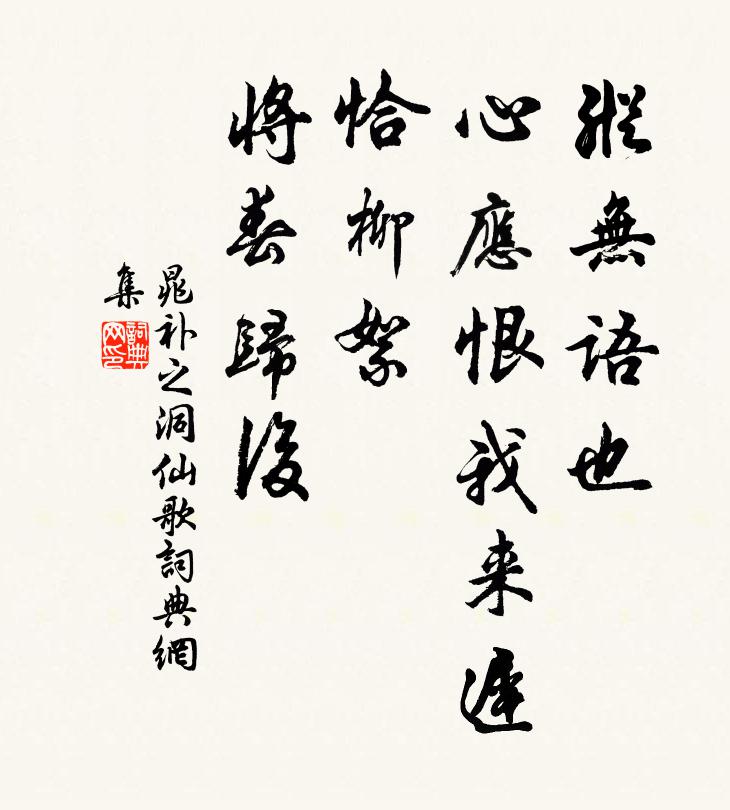 縱無語也
心應恨我来遲
恰柳絮
將春歸後
晁补之洞仙歌詞典網
集
詞典網印